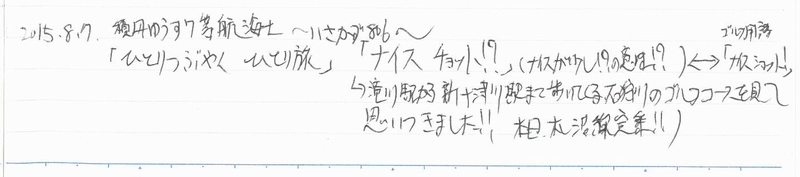 2015.8.7. 積丹ゆうすけ等航海士 ～いさかず806～
ゴルフ用語
「ひとりつぶやく ひとり旅」「ナイス チョット!?」(ナイスが少し!?の意味!?)⟷「ナイスショット!」
↳滝川駅から新十津川駅まで歩いてる石狩川のゴルフコースを見て
思いつきました!! 札沼線完乗!!)